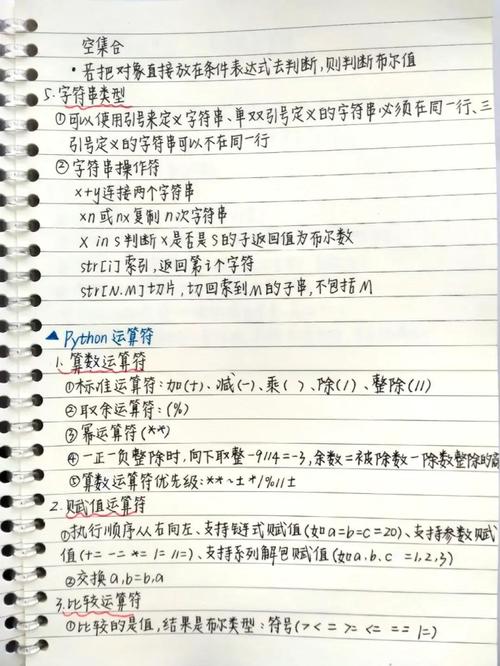 空集合
·若把对象直接放在条件表达式去判断,则判断布尔值
5.字符串类型
①可以使用引号来定义字符串、单双引号定义的字符串必须在同一行、三
引号定义的字符串可以不在同一行
②字符串操作符
x+y连接两个字符串
xn或nx复制n次字符串
x in s判断x是否是s的子返回值为布尔数
str[i]索引,返回第i个字符
str[N.M]切片,切回索到M的子串,不包括M
▲Python运算符
1.算数运算符
①标准运算符:加(+)、减(-)、乘( )、除(/)、整除(//)
②取余运算符:(%)
③幂运算符(**)
④一正一负整除时,向下取整-9//4=-3,余数=被除数-除数整除的商
⑤算数运算符优先级:**~±*/%//±
2.赋值运算符
①执行顺序从右向左、支持链式赋值(如a=b=c=20)、支持参数赋
值(+= -= *= /= //=)、支持系列解包赋值(如a.b.c =1,2,3)
②交换a,b=b,a
3.比较运算符
①比较的是值,结果是布尔类型:符号(> < = >= <= == !=)